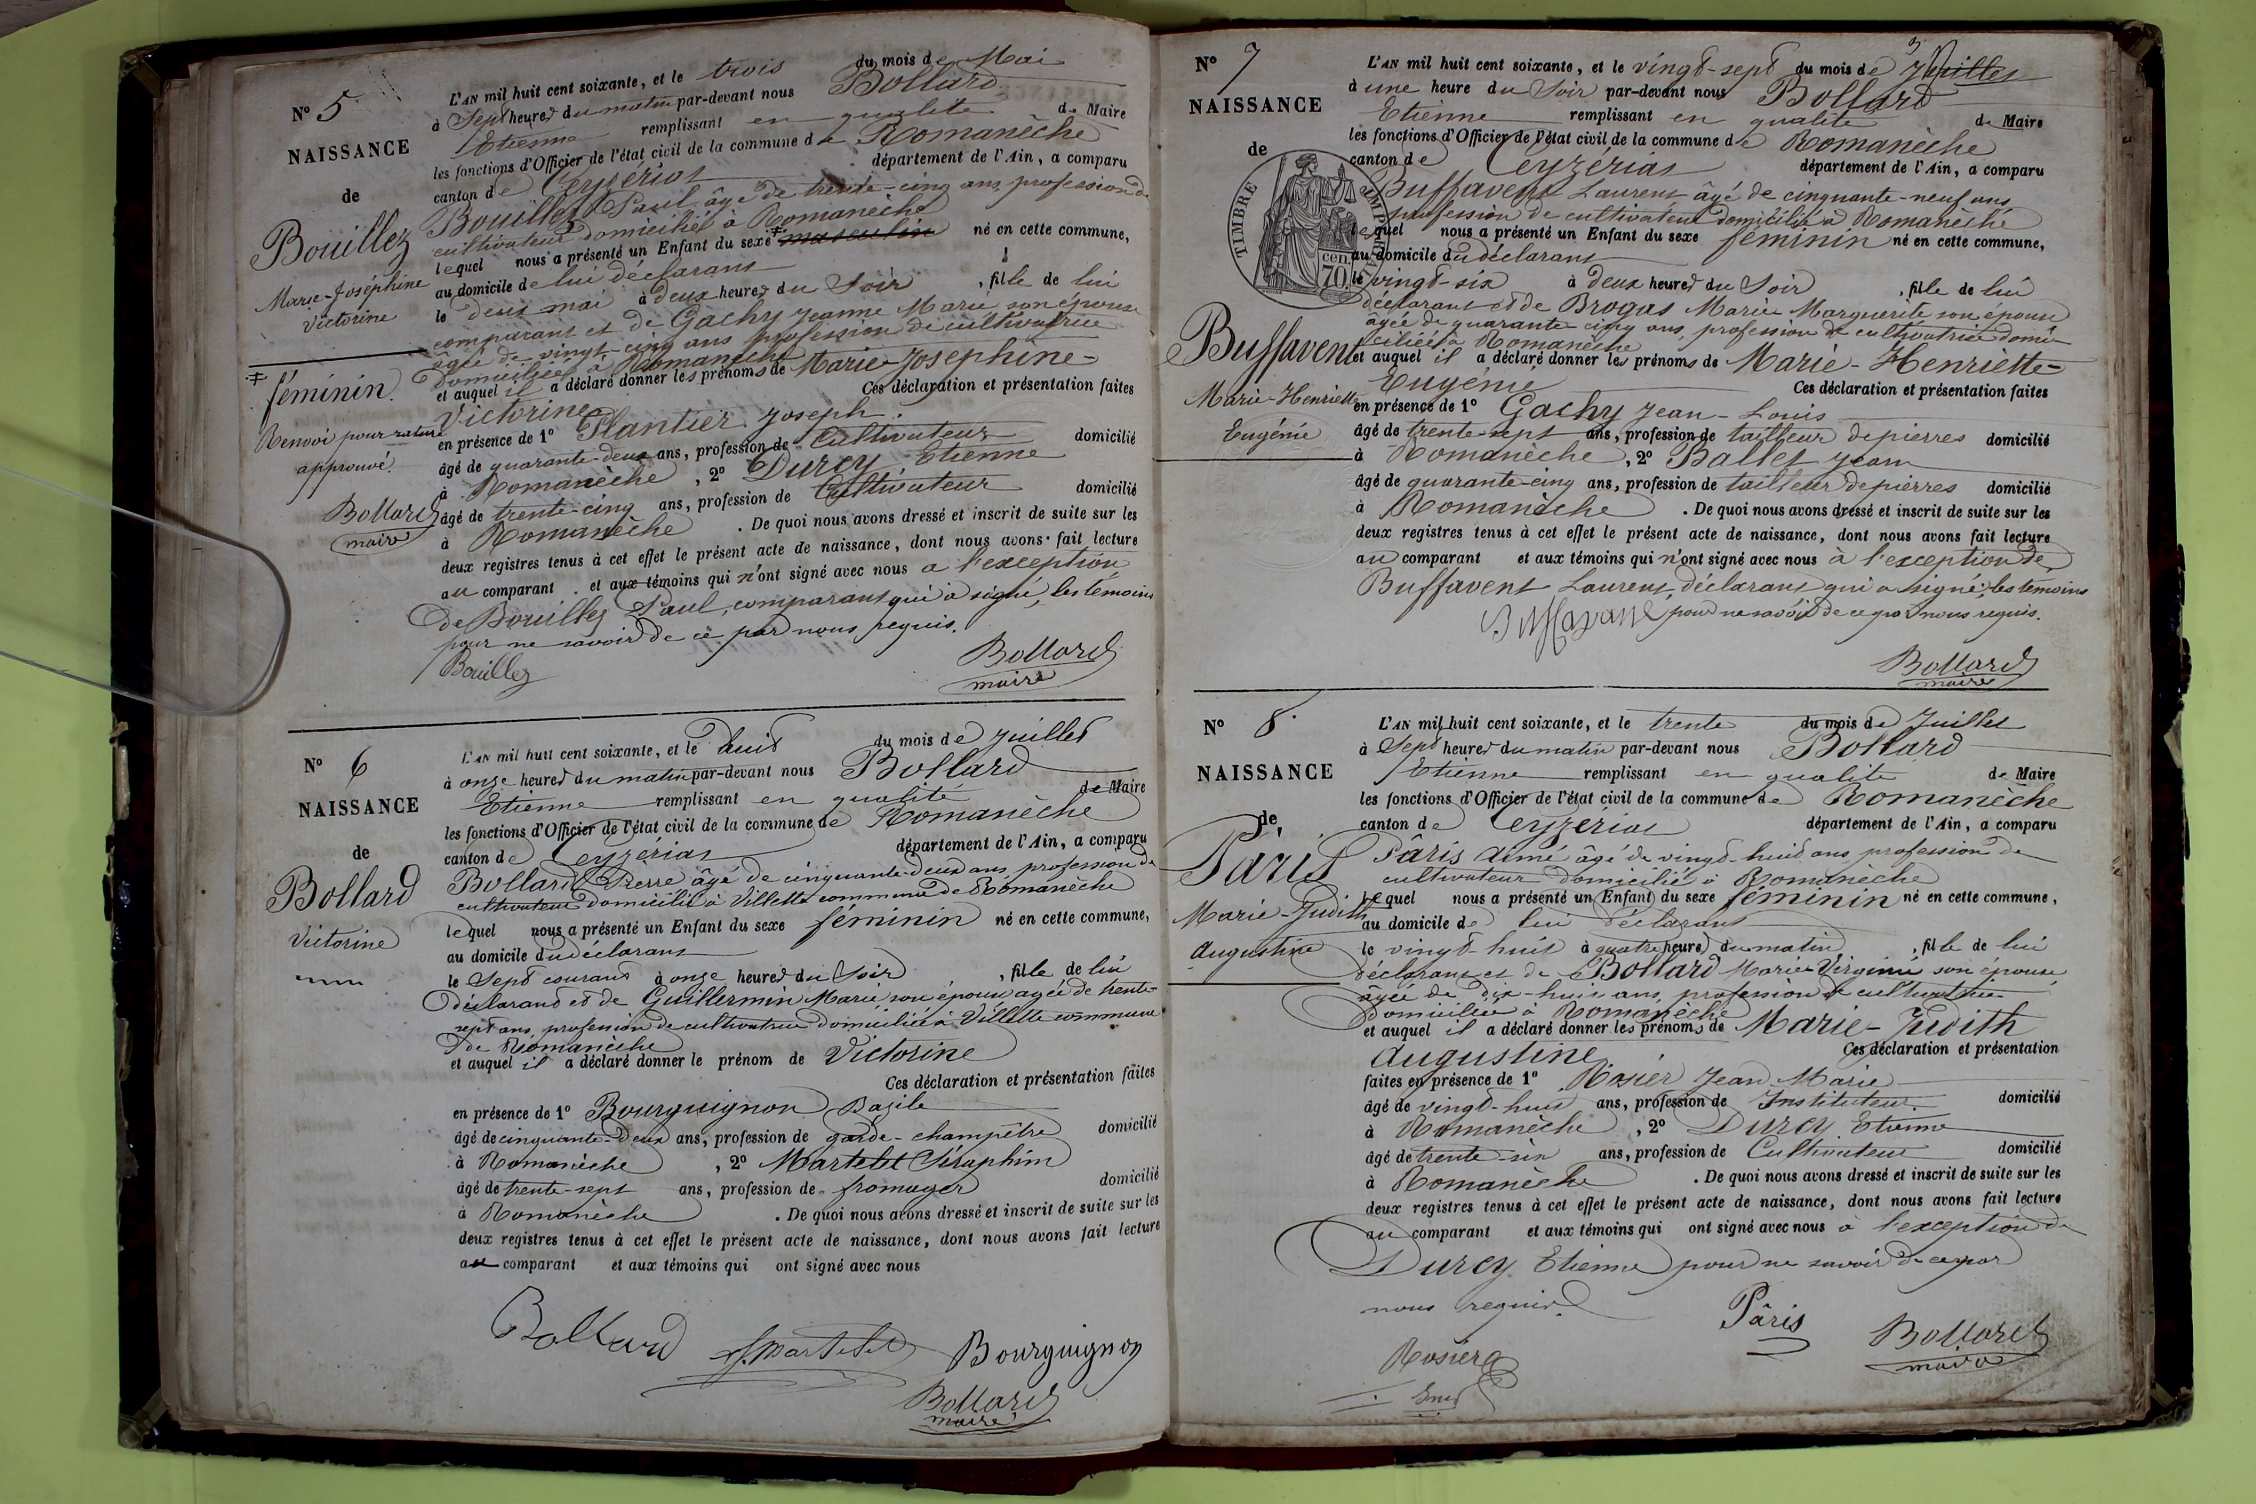 N° 5
NAISSANCE
de
Bouillez
Marie-Joséphine
Victorine
L'AN mil huit cent soixante, et le trois du mois de Mai
à Sept heures du matin par-devant nous Bollard
Etienne remplissant en qualité de Maire
les fonctions d'Officier de l'état civil de la commune de Romanèche
canton de Ceyzériat département de l'Ain, a comparu
Bouillez Paul âgé de trente-cinq ans, profession de
cultivateur domicilié à Romanèche
lequel nous a présenté un Enfant du sexe ‡ masculin né en cette commune,
au domicile de lui déclarant
le deux mai à deux heures du Soir, fille de lui
comparant et de Gachy Jeanne Marie son épouse
âgée de vingt-cinq ans profession de cultivatrice
domiciliée à Romanèche
et auquel il a déclaré donner les prénoms de Marie-Joséphine-
Victorine Ces déclaration et présentation faites
en présence de 1° Plantier Joseph
âgé de quarante-deux ans, profession de Cultivateur domicilié
à Romanèche, 2° Durcy Etienne
âgé de trente-cinq ans, profession de Cultivateur domicilié
à Romanèche. De quoi nous avons dressé et inscrit de suite sur les
deux registres tenus à cet effet le présent acte de naissance, dont nous avons fait lecture
au comparant et aux témoins qui n'ont signé avec nous à l'exception
de Bouillez Paul, comparant qui a signé, les témoins
pour ne savoir de ce par nous requis.
Bouillez
Bollard
maire
‡ féminin.
Renvoi pour rature
approuvé.
Bollard
maire
N° 6
NAISSANCE
de
Bollard
Victorine
L'AN mil huit cent soixante, et le huit du mois de Juillet
à onze heures du matin par-devant nous Bollard
Etienne remplissant en qualité de Maire
les fonctions d'Officier de l'état civil de la commune de Romanèche
canton de Ceyzériat département de l'Ain, a comparu
Bollard Pierre âgé de cinquante-deux ans, profession de
cultivateur domicilié à Villette commune de Romanèche
lequel nous a présenté un Enfant du sexe féminin né en cette commune,
au domicile du déclarant
le Sept courant à onze heures du Soir, fille de lui
déclarant et de Guillermin Marie, son épouse âgée de trente-
sept ans, profession de cultivatrice domiciliée à Villette commune
de Romanèche
et auquel il a déclaré donner le prénom de Victorine
Ces déclaration et présentation faites
en présence de 1° Bourguignon Bazile
âgé de cinquante-deux ans, profession de garde-champêtre domicilié
à Romanèche, 2° Martelet Séraphin
âgé de trente-sept ans, profession de fromager domicilié
à Romanèche. De quoi nous avons dressé et inscrit de suite sur les
deux registres tenus à cet effet le présent acte de naissance, dont nous avons fait lecture
au comparant et aux témoins qui ont signé avec nous
Bollard
S. Martelet
Bourguignon
Bollard
maire
N° 7
NAISSANCE
de
TIMBRE IMPERIAL
70 cen.
Buffavent
Marie-Henriette
Eugénie
L'AN mil huit cent soixante, et le vingt-sept du mois de Juillet
à une heure du Soir par-devant nous Bollard
Etienne remplissant en qualité de Maire
les fonctions d'Officier de l'état civil de la commune de Romanèche
canton de Ceyzériat département de l'Ain, a comparu
Buffavent Laurent âgé de cinquante-neuf ans
profession de cultivateur domicilié à Romanèche
lequel nous a présenté un Enfant du sexe féminin né en cette commune,
au domicile du déclarant
le vingt-six à deux heures du Soir, fille de lui
déclarant et de Brogas Marie Marguerite son épouse
âgée de quarante cinq ans, profession de cultivatrice domi-
ciliée à Romanèche
et auquel il a déclaré donner les prénoms de Marie-Henriette-
Eugénie Ces déclaration et présentation faites
en présence de 1° Gachy Jean-Louis
âgé de trente-sept ans, profession de tailleur de pierres domicilié
à Romanèche, 2° Ballet Jean
âgé de quarante-cinq ans, profession de tailleur de pierres domicilié
à Romanèche. De quoi nous avons dressé et inscrit de suite sur les
deux registres tenus à cet effet le présent acte de naissance, dont nous avons fait lecture
au comparant et aux témoins qui n'ont signé avec nous à l'exception de
Buffavent Laurent, déclarant qui a signé, les témoins
pour ne savoir de ce par nous requis.
Bollard
maire
N° 8
NAISSANCE
de
Pâris
Marie-Judith
Augustine
L'AN mil huit cent soixante, et le trente du mois de Juillet
à Sept heures du matin par-devant nous Bollard
Etienne remplissant en qualité de Maire
les fonctions d'Officier de l'état civil de la commune de Romanèche
canton de Ceyzériat département de l'Ain, a comparu
Pâris Aimé âgé de vingt-huit ans profession de
cultivateur domicilié à Romanèche
lequel nous a présenté un Enfant du sexe féminin né en cette commune,
au domicile de lui déclarant
le vingt-huit à quatre heures du matin, fille de lui
déclarant et de Bollard Marie Virginie son épouse
âgée de dix-huit ans, profession de cultivatrice
domiciliée à Romanèche
et auquel il a déclaré donner les prénoms de Marie-Judith
Augustine Ces déclaration et présentation
faites en présence de 1° Rosier Jean Marie
âgé de vingt-huit ans, profession de Instituteur domicilié
à Romanèche, 2° Durcy Etienne
âgé de trente-six ans, profession de Cultivateur domicilié
à Romanèche. De quoi nous avons dressé et inscrit de suite sur les
deux registres tenus à cet effet le présent acte de naissance, dont nous avons fait lecture
au comparant et aux témoins qui ont signé avec nous à l'exception de
Durcy Etienne pour ne savoir de ce par
nous requis.
Pâris
Bollard
maire
Rosier